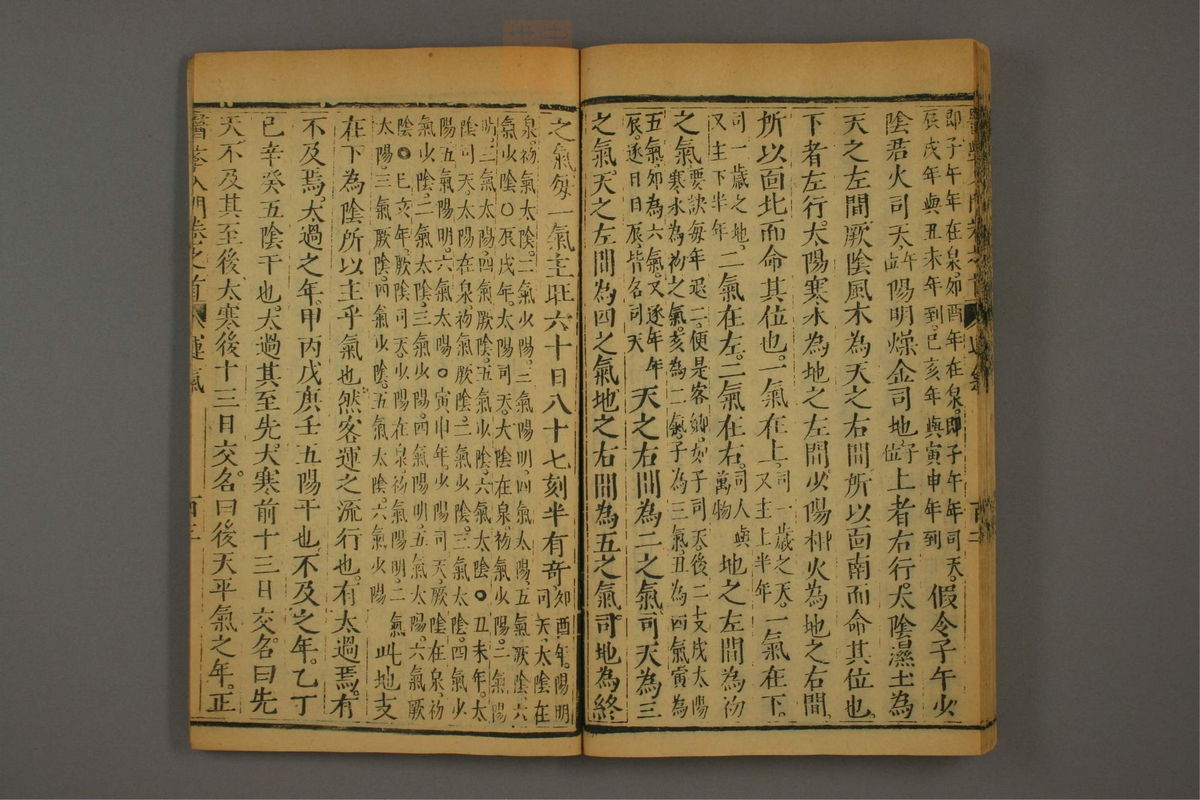 即子午年在泉。卯酉年在泉。即子午年司天。假令子午少
辰戌年與丑未年到。巳亥年與寅申年到
陰君火司天午位陽明燥金司地子位上者右行。太陰濕土為
天之左間厥陰風木為天之右間所以面南而命其位也。
下者左行。太陽寒水為地之左間。少陽相火為地之右間。
所以面北而命其位也。一氣在上。司一歲之天。又主上半年一氣在下。
司一歲之地。又主下半年二氣在左。二氣在右。司人與萬物地之左間為初
之氣要訣每年退二。便是客鄉。如子司天後二支戌太陽寒水為初之氣。亥為二氣子為三氣。丑為四氣寅為
五氣。卯為六氣。又逐年年辰。逐日日辰皆名司天天之右間為二之氣司天為三
之氣。天之左間為四之氣。地之右間為五之氣。司地為終
之氣每一氣主旺六十日八十七刻半有奇如卯酉年。陽明司天。太陰在
泉。初氣太陰。二氣少陽。三氣陽明。四氣太陽。五氣厥陰。六
氣少陰〇辰戌年。太陽司天。太陰在泉。初氣少陽。二氣陽
明。三氣太陽。四氣厥陰。五氣少陰。六氣太陰〇丑未年。太
陰司天。太陽在泉。初氣厥陰。二氣少陰。三氣太陰。四氣少
陽五氣陽明。六氣太陽〇寅申年。少陽司天。厥陰在泉初
氣少陰。二氣太陰。三氣少陽。四氣陽明五氣太陽。六氣厥
陰〇巳亥年。厥陰司天少陽在泉初氣陽明。二氣
太陽。三氣厥陰。四氣少陰。五氣太陰。六氣少陽此地支
在下為陰所以主乎氣也然客運之流行也。有太過焉。有
不及焉。太過之年。甲丙戊庚壬五陽干也不及之年。乙丁
己辛癸五陰干也。太過其至先。大寒前十三日交。名曰先
天。不及其至後。大寒後十三日交。名曰後天平氣之年。正
醫學入門卷之首 運氣 百四三